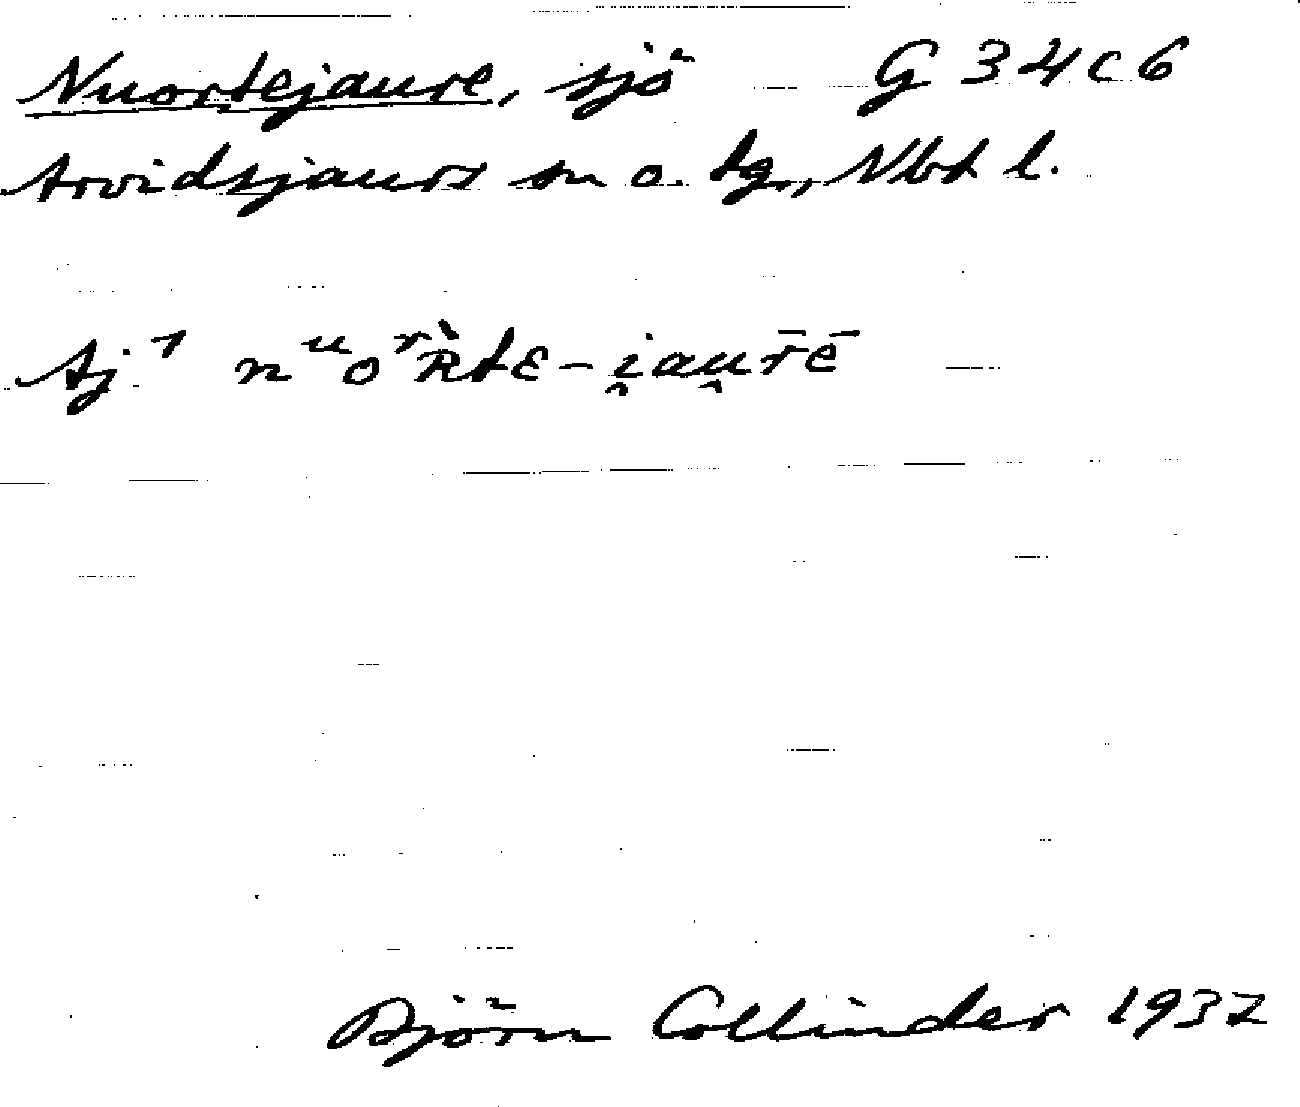 Nuortejaure, sjö G 34 c 6
Arvidsjaurs sn o. tg., Nbt l.
Aj ¹ nᵘoʳR̀tɛ-i̯au̯r̄ē
Björn Collinder 1937